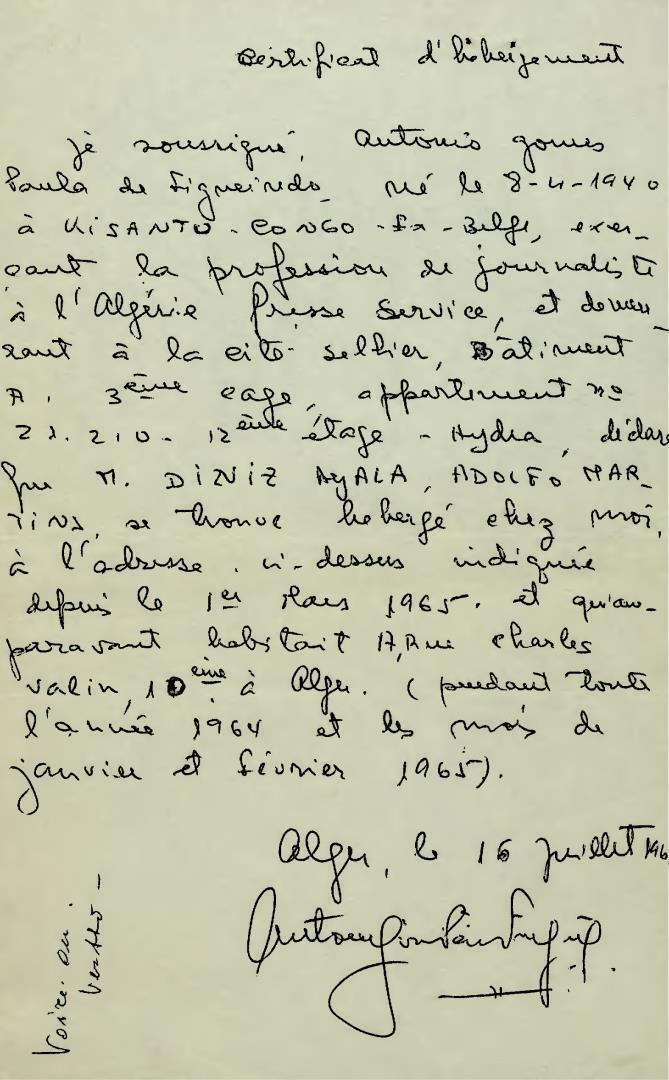 Certificat d'hébergement
je soussigné, Antonio gomes
Paula de Figueiredo, né le 8-4-1940
à KISANTU - CONGO - Ex - Belge, exer-
cant la profession de journaliste
à l'Algérie Presse Service, et demeu-
rant à la cité sellier, Bâtiment
A. 3ème cage, appartement no
21.210 - 12ème étage - Hydra, déclare
que M. DINIZ AYALA, ADOLFO MAR-
TINS, se trouve hebergé chez moi,
à l'adresse ci-dessus indiquée
depuis le 1er Mars 1965. et qu'au-
paravant habitait 17, Rue Charles
Valin, 10ème à Alger. (pendant toute
l'année 1964 et les mois de
janvier et février 1965).
Alger, le 16 juillet 196
Voire au
verso -